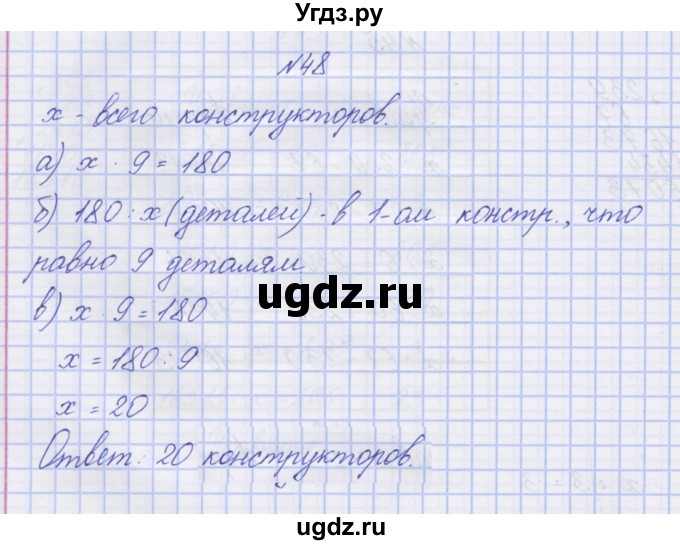 Угдз.ру
№48
х - всего конструкторов.
а) х · 9 = 180
б) 180 : х (деталей) - в 1-ом констр., что
равно 9 деталям
ugdz.ru
в) х · 9 = 180
х = 180 : 9
х = 20
Ответ: 20 конструкторов.
ugdz.ru